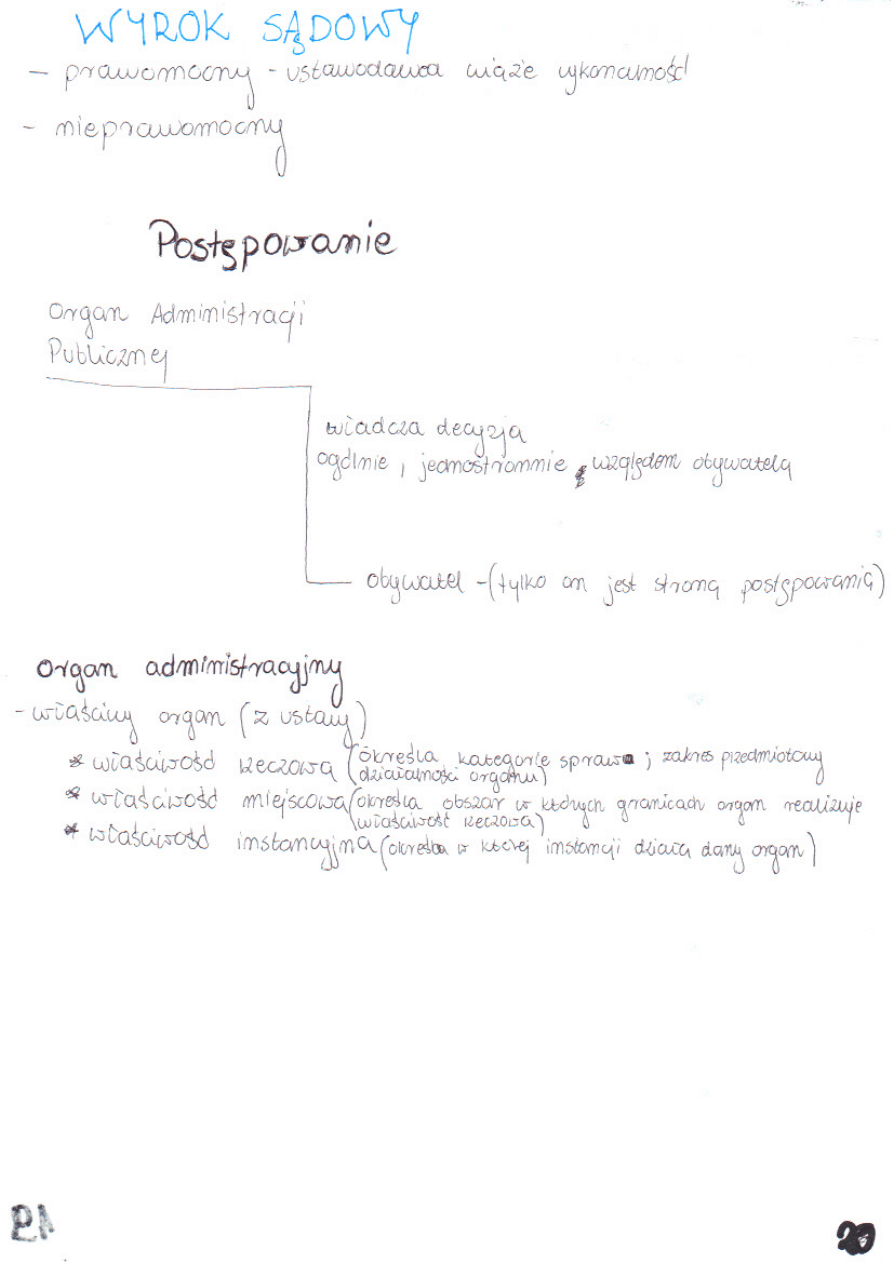 WYROK SĄDOWY
- prawomocny - ustawodawca wiąże wykonalność
- nieprawomocny
Postępowanie
Organ Administracji
Publicznej
władcza decyzja
ogólnie, jednostronnie względem obywatela
obywatel - (tylko on jest stroną postępowania)
Organ administracyjny
- właściwy organ (z ustawy)
* właściwość rzeczowa (określa kategorie spraw ; zakres przedmiotowy
działalności organu)
* właściwość miejscowa (określa obszar w których granicach organ realizuje
właściwość rzeczowa)
* właściwość instancyjna (określa w której instancji działa dany organ)
19
20